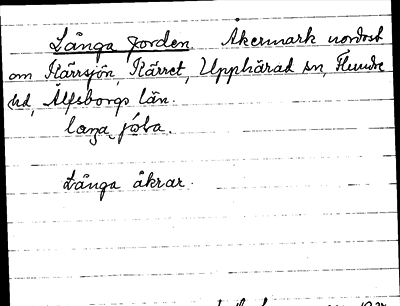 Långa Jorden. Åkermark nordost
om Kärrsjön, Kärret, Upphärad sn, Flundre
hd, Älfsborgs län.
Långa åkrar.